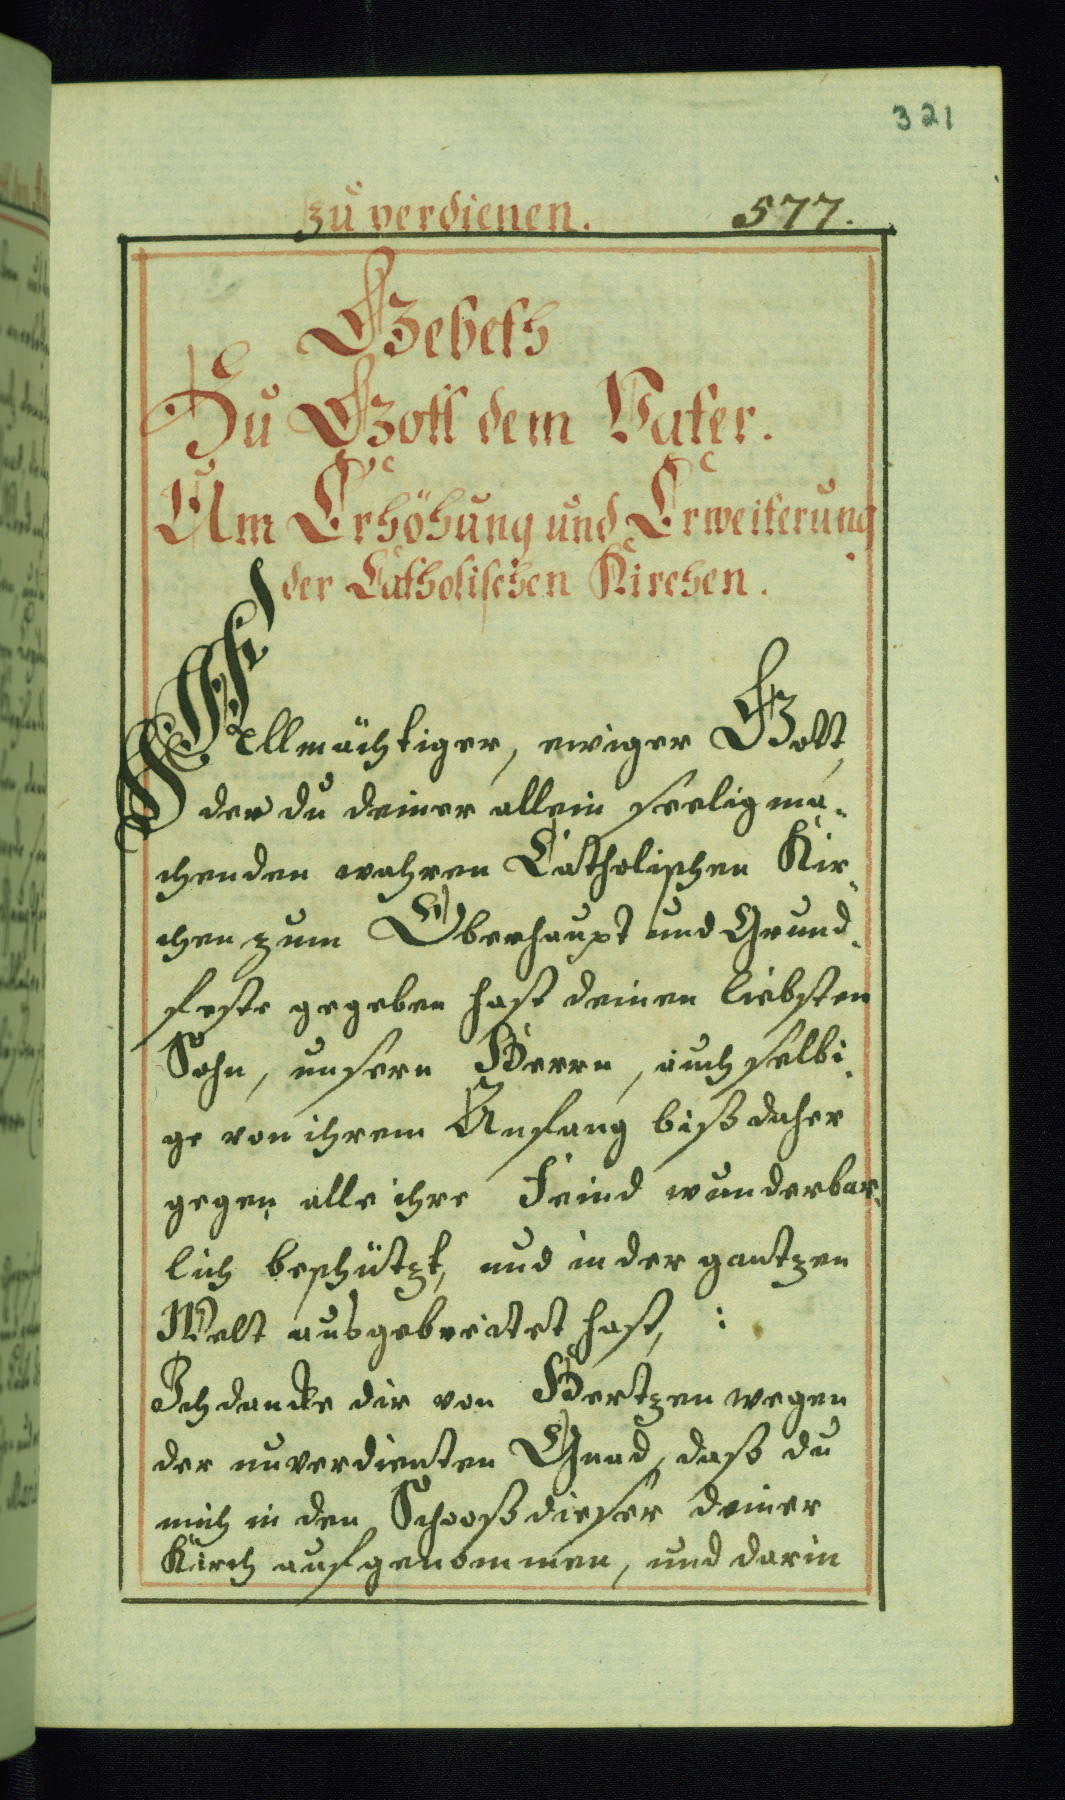 321
zu verdienen. 577.
Gebeth
Zu Gott dem Vater.
Um Erhöhung und Erweiterung
der Catholischen Kirchen.
Allmächtiger, ewiger Gott,
der du deiner allein seeligma-
chenden wahren Catholischen Kir-
chen zum Oberhaupt und Grund-
feste gegeben hast deinen liebsten
Sohn, unsern Herrn, auch selbi-
ge von ihrem Anfang biß daher
gegen alle ihre Feind wunderbar-
lich beschützt, und in der gantzen
Welt ausgebreitet hast, :
Ich dancke dir von Hertzen wegen
der unverdienten Gnad, daß du
mich in den Schooß dieser deiner
Kirch aufgenommen, und darin